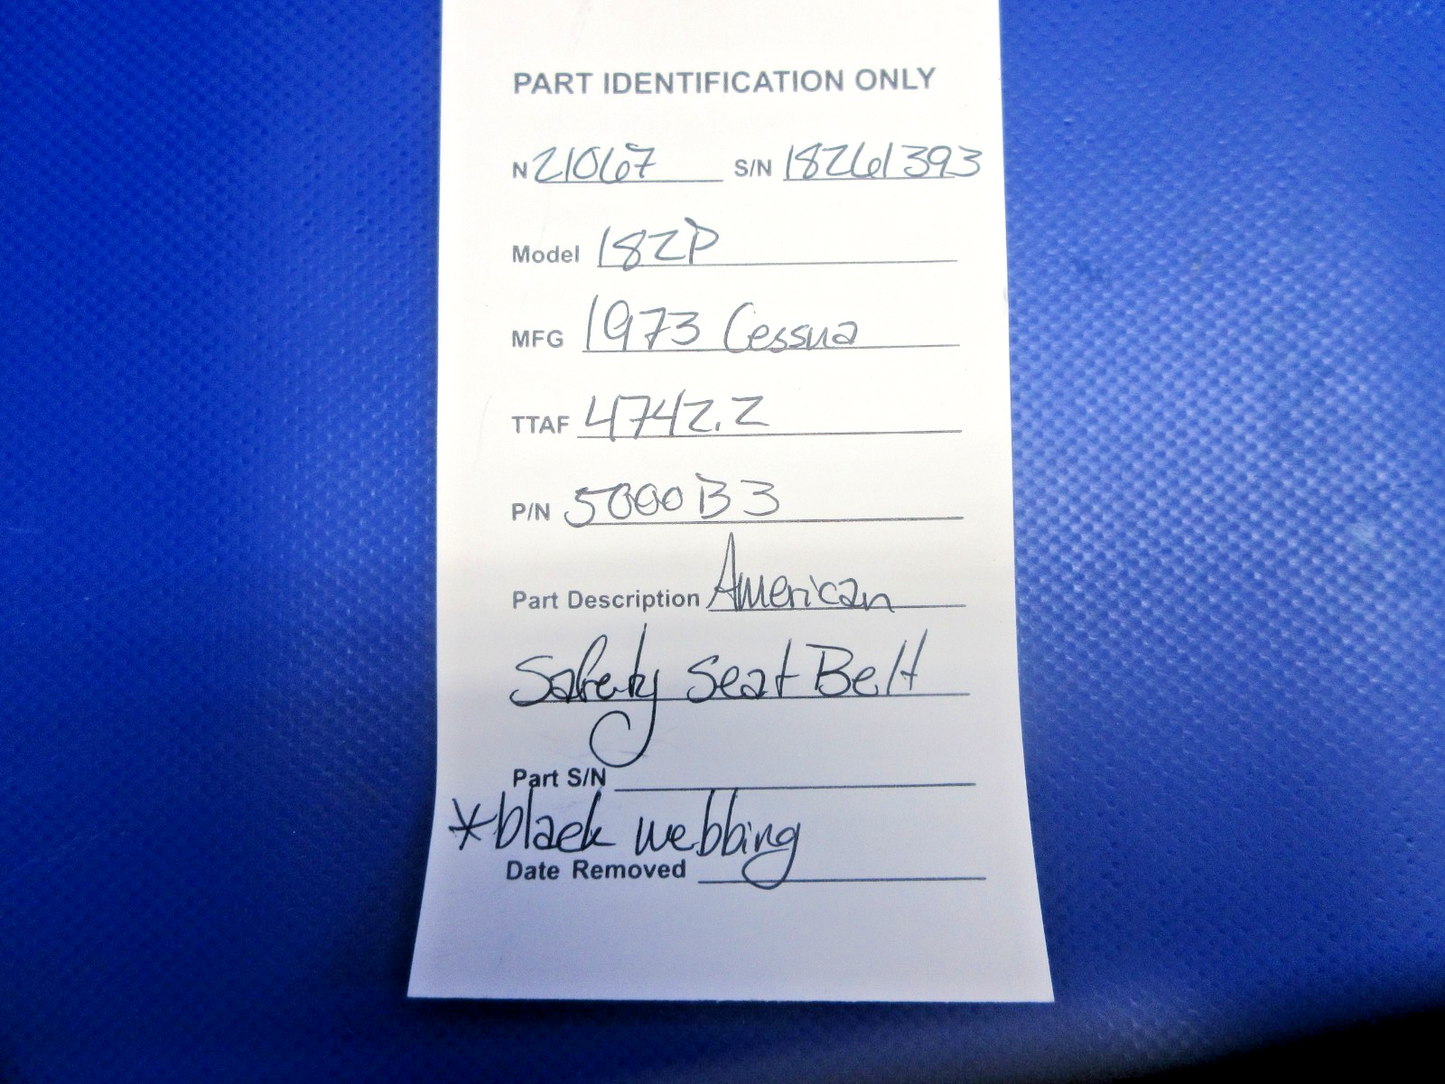 PART IDENTIFICATION ONLY
N 21067 S/N 18261393
Model 182P
MFG 1973 Cessna
TTAF 4742.2
P/N 5000B3
Part Description American
Safety Seat Belt
Part S/N
*black webbing
Date Removed